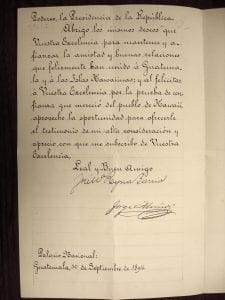 Poderes, la Presidencia de la República.
Abrigo los mismos deseos que
Vuestra Excelencia para mantener y a-
fianzar la amistad y buenas relaciones
que felizmente han unido á Guatema-
la y á las Islas Hawaiianas; y al felicitar
á Vuestra Excelencia por la prueba de con-
fianza que mereció del pueblo de Hawaii,
aprovecho la oportunidad para ofrecerle
el testimonio de mi alta consideración y
aprecio con que me subscribo de Vuestra
Excelencia,
Leal y Buen Amigo
José Ma. Reyna Barrios
Jorge Muñoz
Palacio Nacional:
Guatemala, de Septiembre de 1894